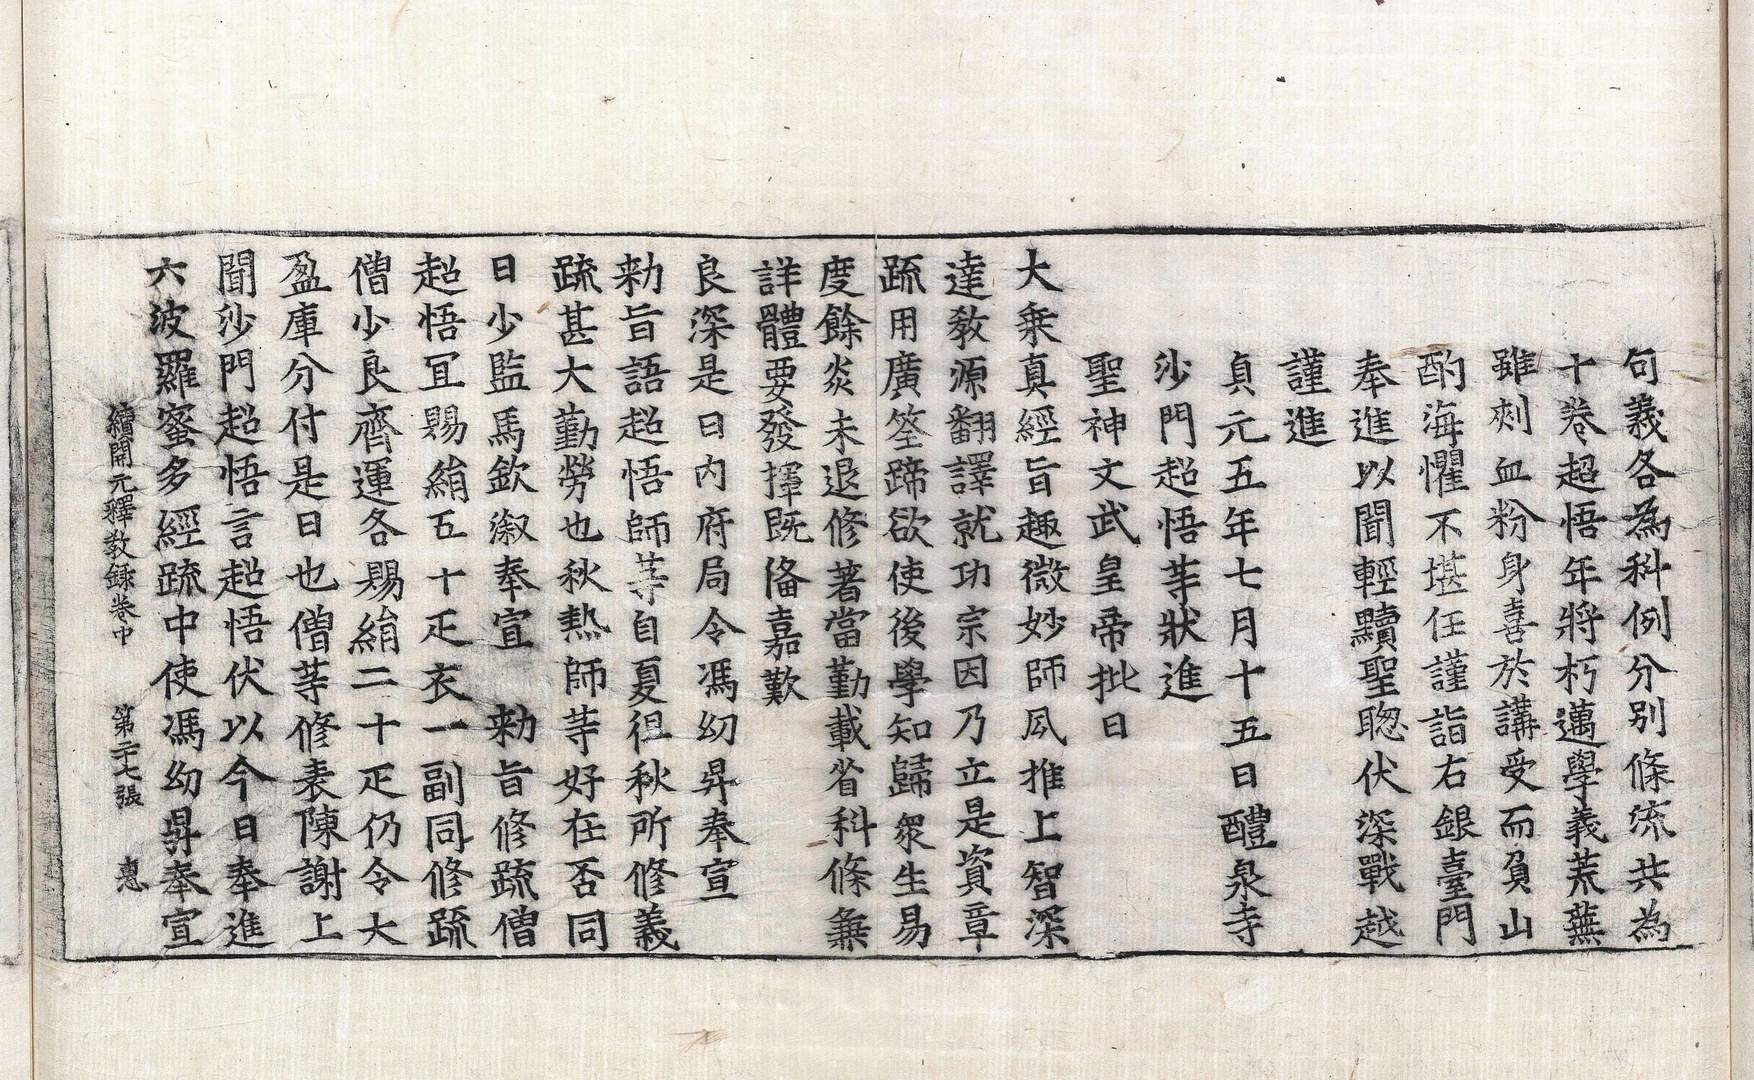 句義各為科例分別條流共為
十卷超悟年將朽邁學義荒蕪
雖刾血粉身喜於講受而負山
酌海懼不堪任謹詣右銀臺門
奉進以聞輕黷聖聦伏深戰越
謹進
貞元五年七月十五日醴泉寺
沙門超悟䓁狀進
聖神文武皇帝批曰
大乗真經旨趣微妙師夙推上智深
達教源翻譯就功宗因乃立是資章
䟽用廣筌蹄欲使後學知歸衆生易
度餘炎未退修著當勤載省科條兼
詳體要發揮既俻嘉歎
良深是日內府局令馮㓜昇奉宣
勑旨語超悟師䓁自夏徂秋所修義
䟽甚大勤勞也秋熱師䓁好在否同
日少監馬欽溆奉宣　勑旨修䟽僧
超悟冝賜絹五十疋衣一副同修䟽
僧少良齊運各賜絹二十疋仍令大
盈庫分付是日也僧䓁修表陳謝上
聞沙門超悟言超悟伏以今日奉進
六波羅蜜多經䟽中使馮㓜昇奉宣
續開元釋教録卷中　第二十七張　惠